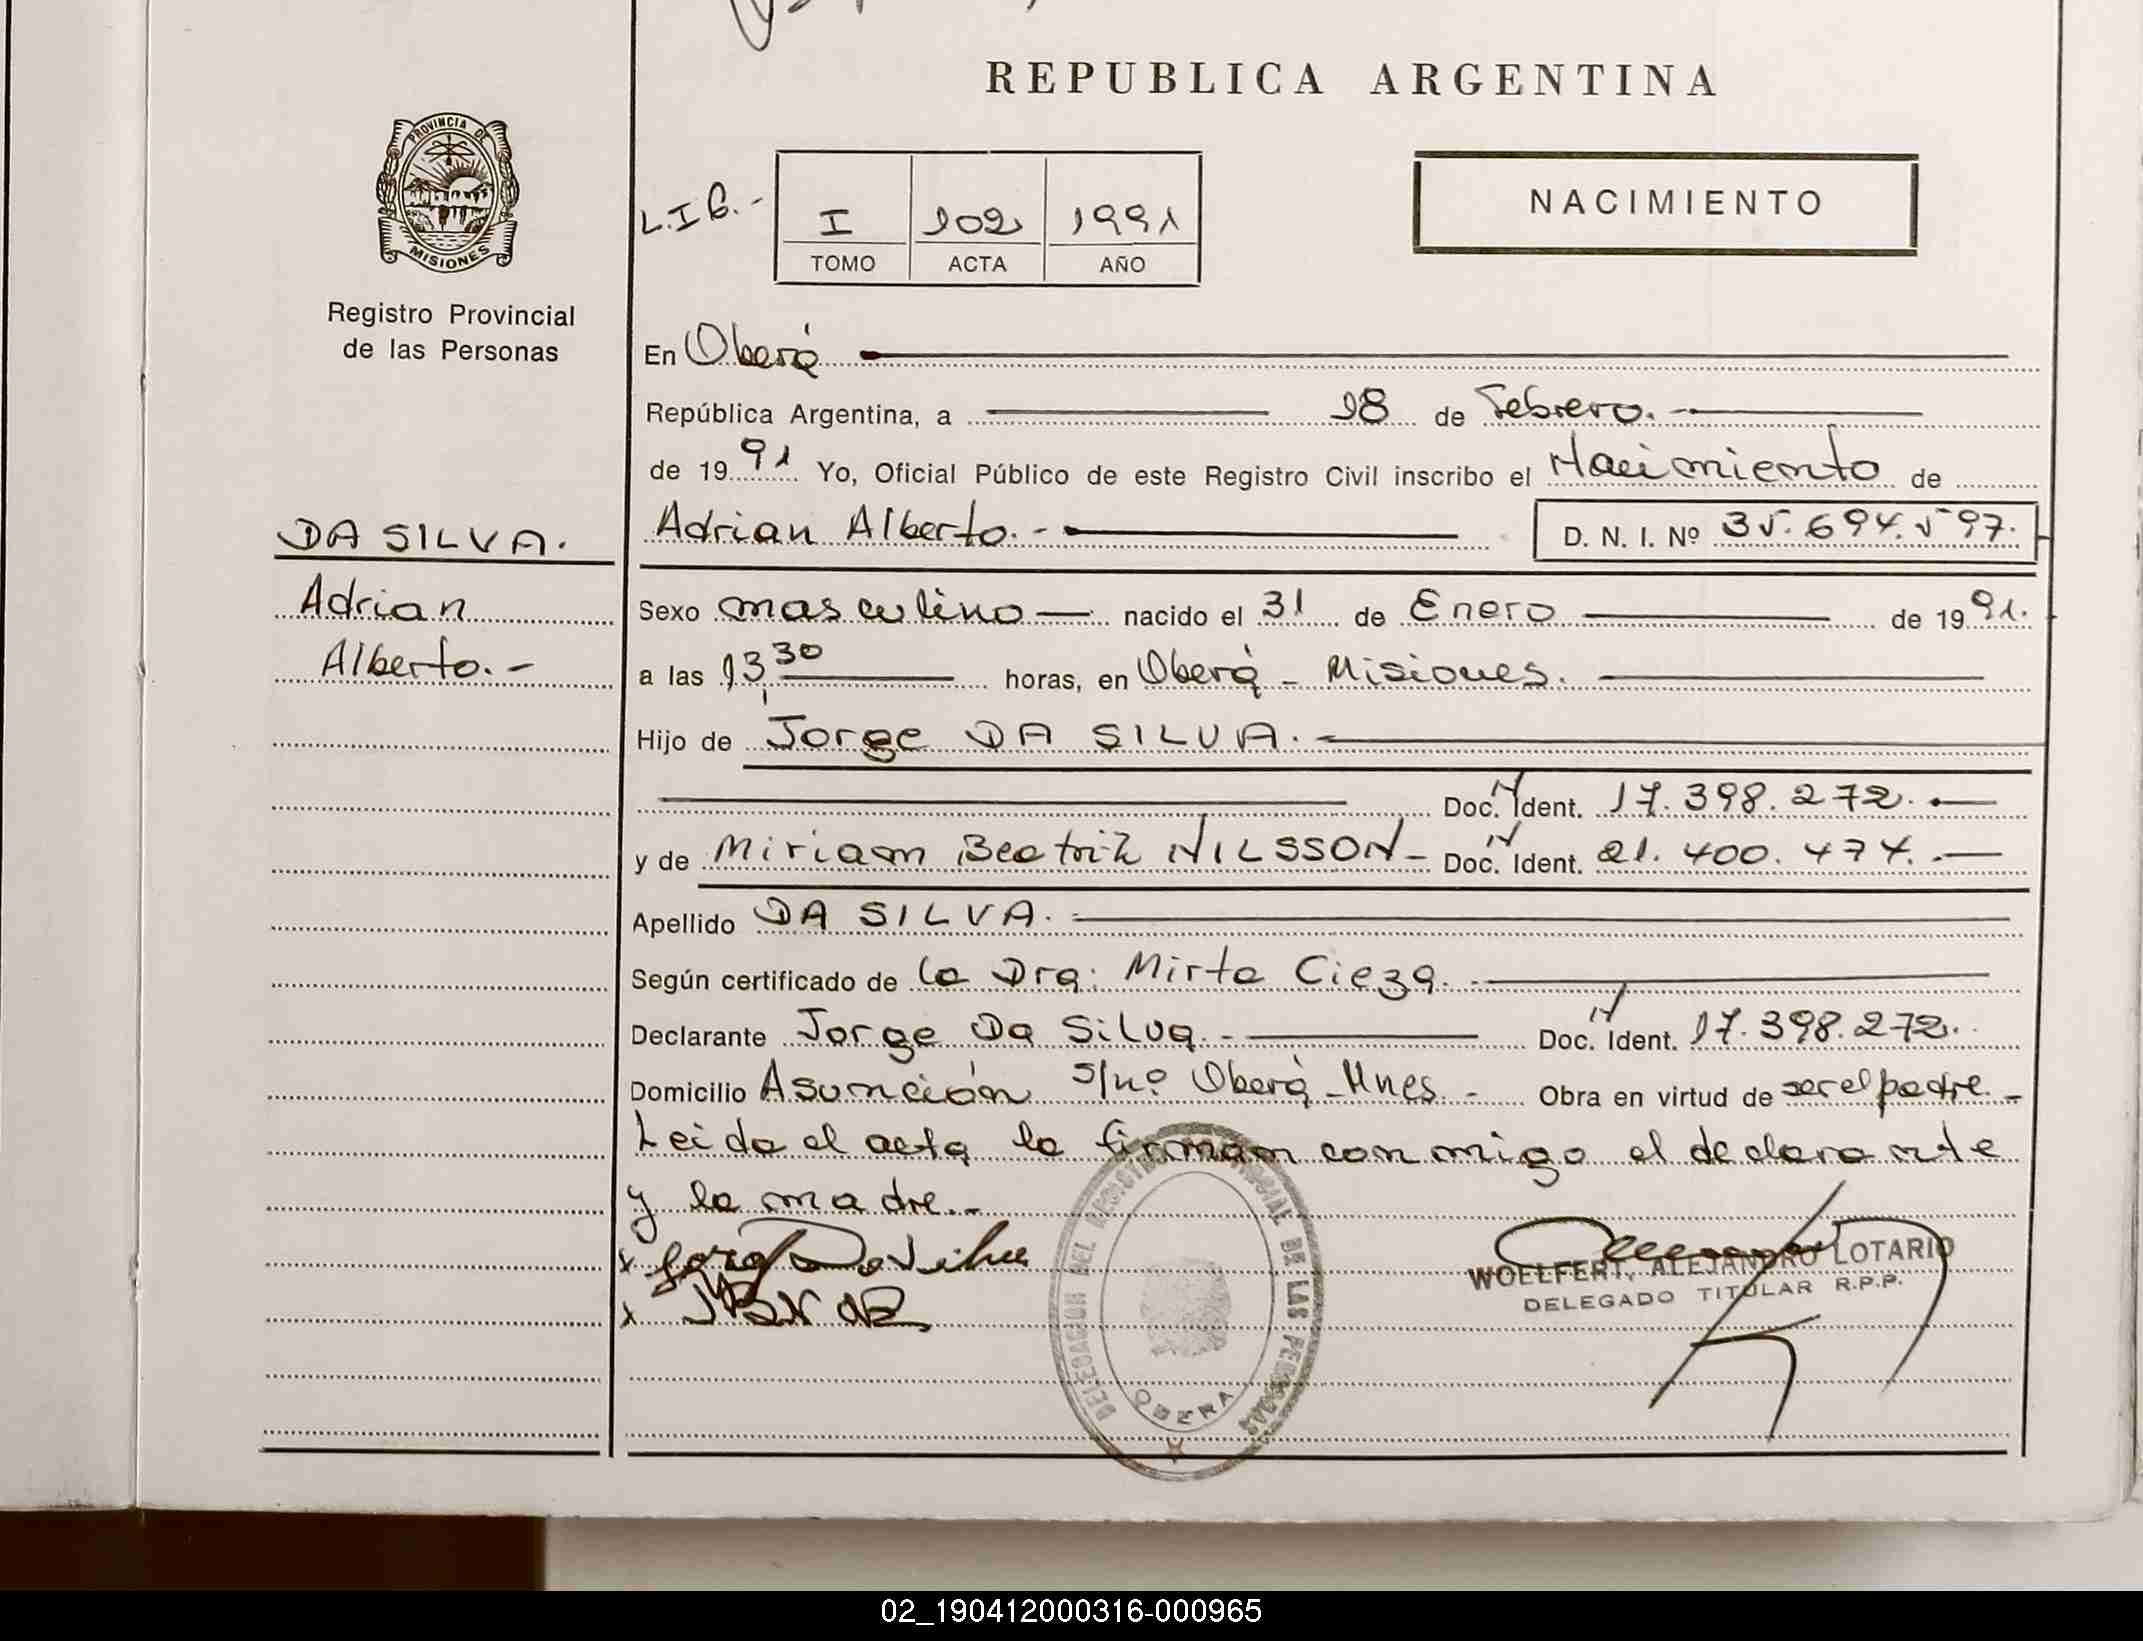 REPUBLICA ARGENTINA
PROVINCIA DE
MISIONES
Registro Provincial
de las Personas
L.I.G.-
I 102 1991
TOMO ACTA AÑO
NACIMIENTO
En Oberá
República Argentina, a 18 de Febrero.-
de 1991 Yo, Oficial Público de este Registro Civil inscribo el Nacimiento de
Adrian Alberto.- D. N. I. Nº 35.694.597.
DA SILVA.
Adrian
Alberto.-
Sexo masculino nacido el 31 de Enero de 1991.
a las 13,30 horas, en Oberá - Misiones.
Hijo de Jorge DA SILVA.-
Doc. Ident. 17.398.272.
y de Miriam Beatriz NILSSON- Doc. Ident. 21.400.474.-
Apellido DA SILVA.
Según certificado de la Dra: Mirta Cieza.
Declarante Jorge Da Silva.- Doc. Ident. 17.398.272.
Domicilio Asunción s/nº Oberá-Mnes.- Obra en virtud de ser el padre.-
Leida el acta la firman conmigo el declarante
y la madre.-
WOELFERT, ALEJANDRO LOTARIO
DELEGADO TITULAR R.P.P.
DELEGACION DEL REGISTRO PROVINCIAL DE LAS PERSONAS
OBERA
02_190412000316-000965